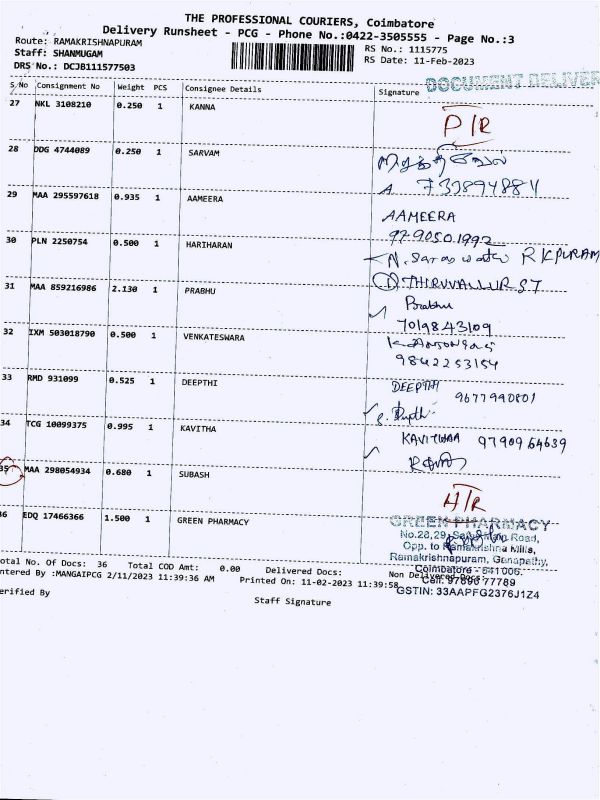 THE PROFESSIONAL COURIERS, Coimbatore
Delivery Runsheet - PCG - Phone No.:0422-3505555 - Page No.:3
Route: RAMAKRISHNAPURAM RS No.: 1115775
Staff: SHANMUGAM RS Date: 11-Feb-2023
DRS No.: DCJB111577503
DOCUMENT DELIVER
S No Consignment No Weight PCS Consignee Details Signature
27 NKL 3108210 0.250 1 KANNA
D/R
28 DDG 4744089 0.250 1 SARVAM
29 MAA 295597618 0.935 1 AAMEERA
AAMEERA
30 PLN 2250754 0.500 1 HARIHARAN
RKPURAM
31 MAA 859216986 2.130 1 PRABHU
THIRUVALLUR ST
Prabhu
7019843109
32 IXM 503018790 0.500 1 VENKATESWARA
9842253154
33 RMD 931099 0.525 1 DEEPTHI
DEEPTHI
9677990801
34 TCG 10099375 0.995 1 KAVITHA
KAVITHAA 9790964639
35 MAA 298054934 0.680 1 SUBASH
36 EDQ 17466366 1.500 1 GREEN PHARMACY
GREEN PHARMACY
No.28,29, Road,
Opp. to Ramakrishna Mills,
Ramakrishnapuram, Ganapathy,
Coimbatore - 641006.
Cell: 97896 77789
GSTIN: 33AAPFG2376J1Z4
otal No. Of Docs: 36 Total COD Amt: 0.00 Delivered Docs: Non Delivered Docs:
ntered By :MANGAIPCG 2/11/2023 11:39:36 AM Printed On: 11-02-2023 11:39:58
erified By
Staff Signature